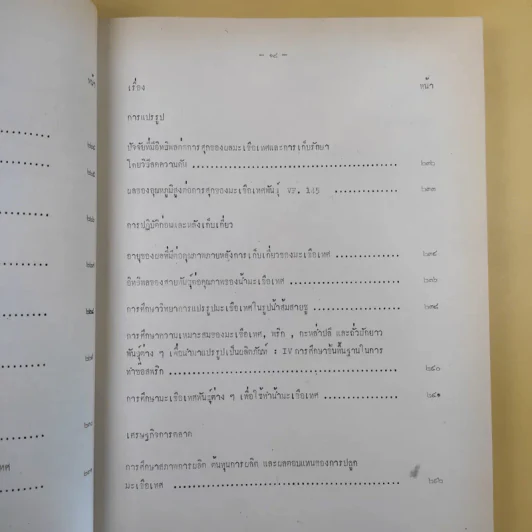 เรื่อง หน้า
การแปรรูป
ปัจจัยที่มีอิทธิพลต่อการสุกของผลมะเขือเทศและการเก็บรักษา
โดยวิธีลดความดัน
ผลของอุณหภูมิสูงต่อการสุกของมะเขือเทศพันธุ์ VF. 145
การปฏิบัติก่อนและหลังเก็บเกี่ยว
อายุของผลที่มีต่อคุณภาพภายหลังการเก็บเกี่ยวของมะเขือเทศ
อิทธิพลของสายพันธุ์ต่อคุณภาพของน้ำมะเขือเทศ
การศึกษาวิทยาการแปรรูปมะเขือเทศในรูปน้ำส้มสายชู
การศึกษาความเหมาะสมของมะเขือเทศ, พริก , กะหล่ำปลี และถั่วฝักยาว
พันธุ์ต่าง ๆ เพื่อนำมาแปรรูปเป็นผลิตภัณฑ์ : IV การศึกษาขั้นพื้นฐานในการ
ทำซอสพริก ๒๔๐
การศึกษามะเขือเทศพันธุ์ต่าง ๆ เพื่อใช้ทำน้ำมะเขือเทศ ๒๔๑
เศรษฐกิจการตลาด
การศึกษาสภาพการผลิต ต้นทุนการผลิต และผลตอบแทนของการปลูก
มะเขือเทศ